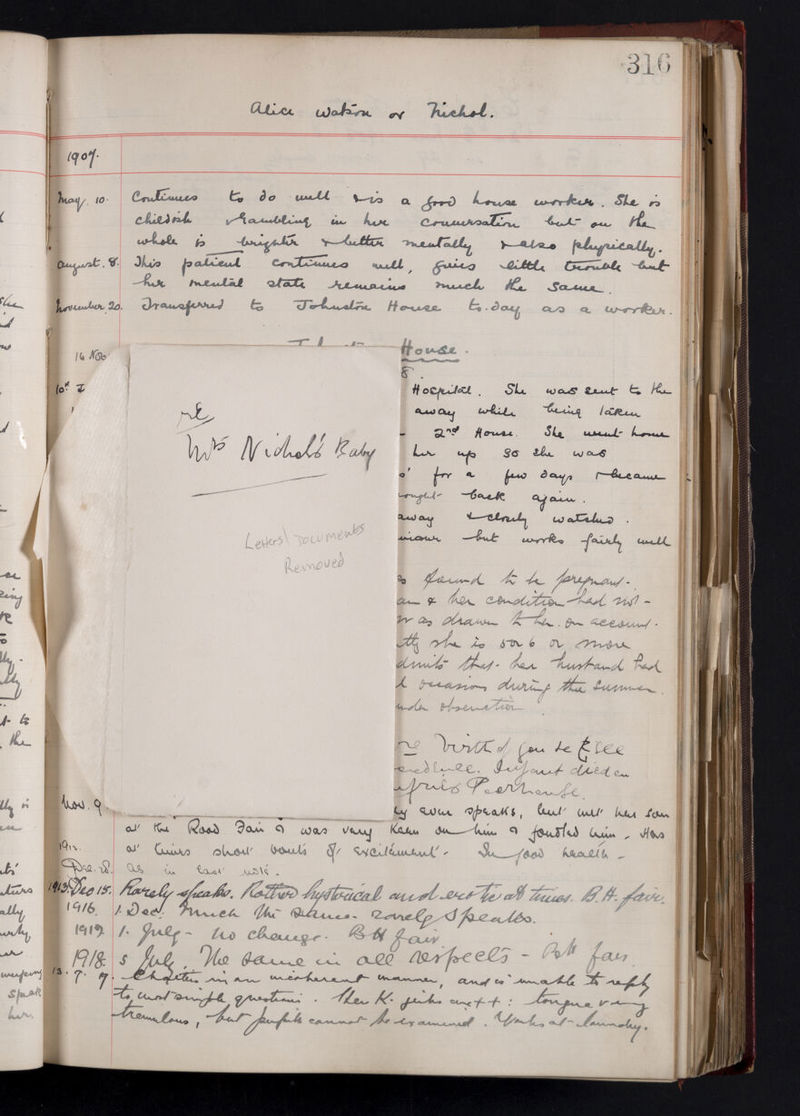 316
Alice Watson or Nichol.
1907.
May. 10. Continues to do well & is a good house worker. She is
childish & rambling in her conversation but on the
whole is brighter & better mentally & also physically.
August. 8. This patient continues well, gives little trouble but
her mental state remains much the same.
November. 20. Transferred to Johnston House to-day as a worker.
16 Nov House.
8.
10th Hospital. She was sent to the
away while being taken
2nd House. She went home
her up so she was
for a few days & became
back again.
away & closely watched.
but works fairly well
found to be pregnant.
& her condition had not
as drawn to her on account
she is 5 or 6 or more
that her husband had
occasions during the Summer.
observation
re
Mrs Nichol's Baby
Letters/Documents
Removed
re birth of
Infant died in
Poorhouse.
Nov. 9 ever speaks, but met her son
at the Rood Fair & was very keen on him & fondled him. Has
at times short bouts of excitement. In good health.
1912.
Dec. 28. as in last note.
1913. Dec 15. Rarely speaks. Rather hysterical and erotic at times. B.H. fair.
1916 1. Dec. Much the same. rarely speaks.
1917 1. July - no change. B H fair
1918. 5 July. The same in all respects - B.H fair.
13. 7. Chatters in an incoherent manner, and is unable to reply
to most simple questions. Her K. jerks are ++: tongue very
tremulous, but pupils cannot be examined. Works at laundry.